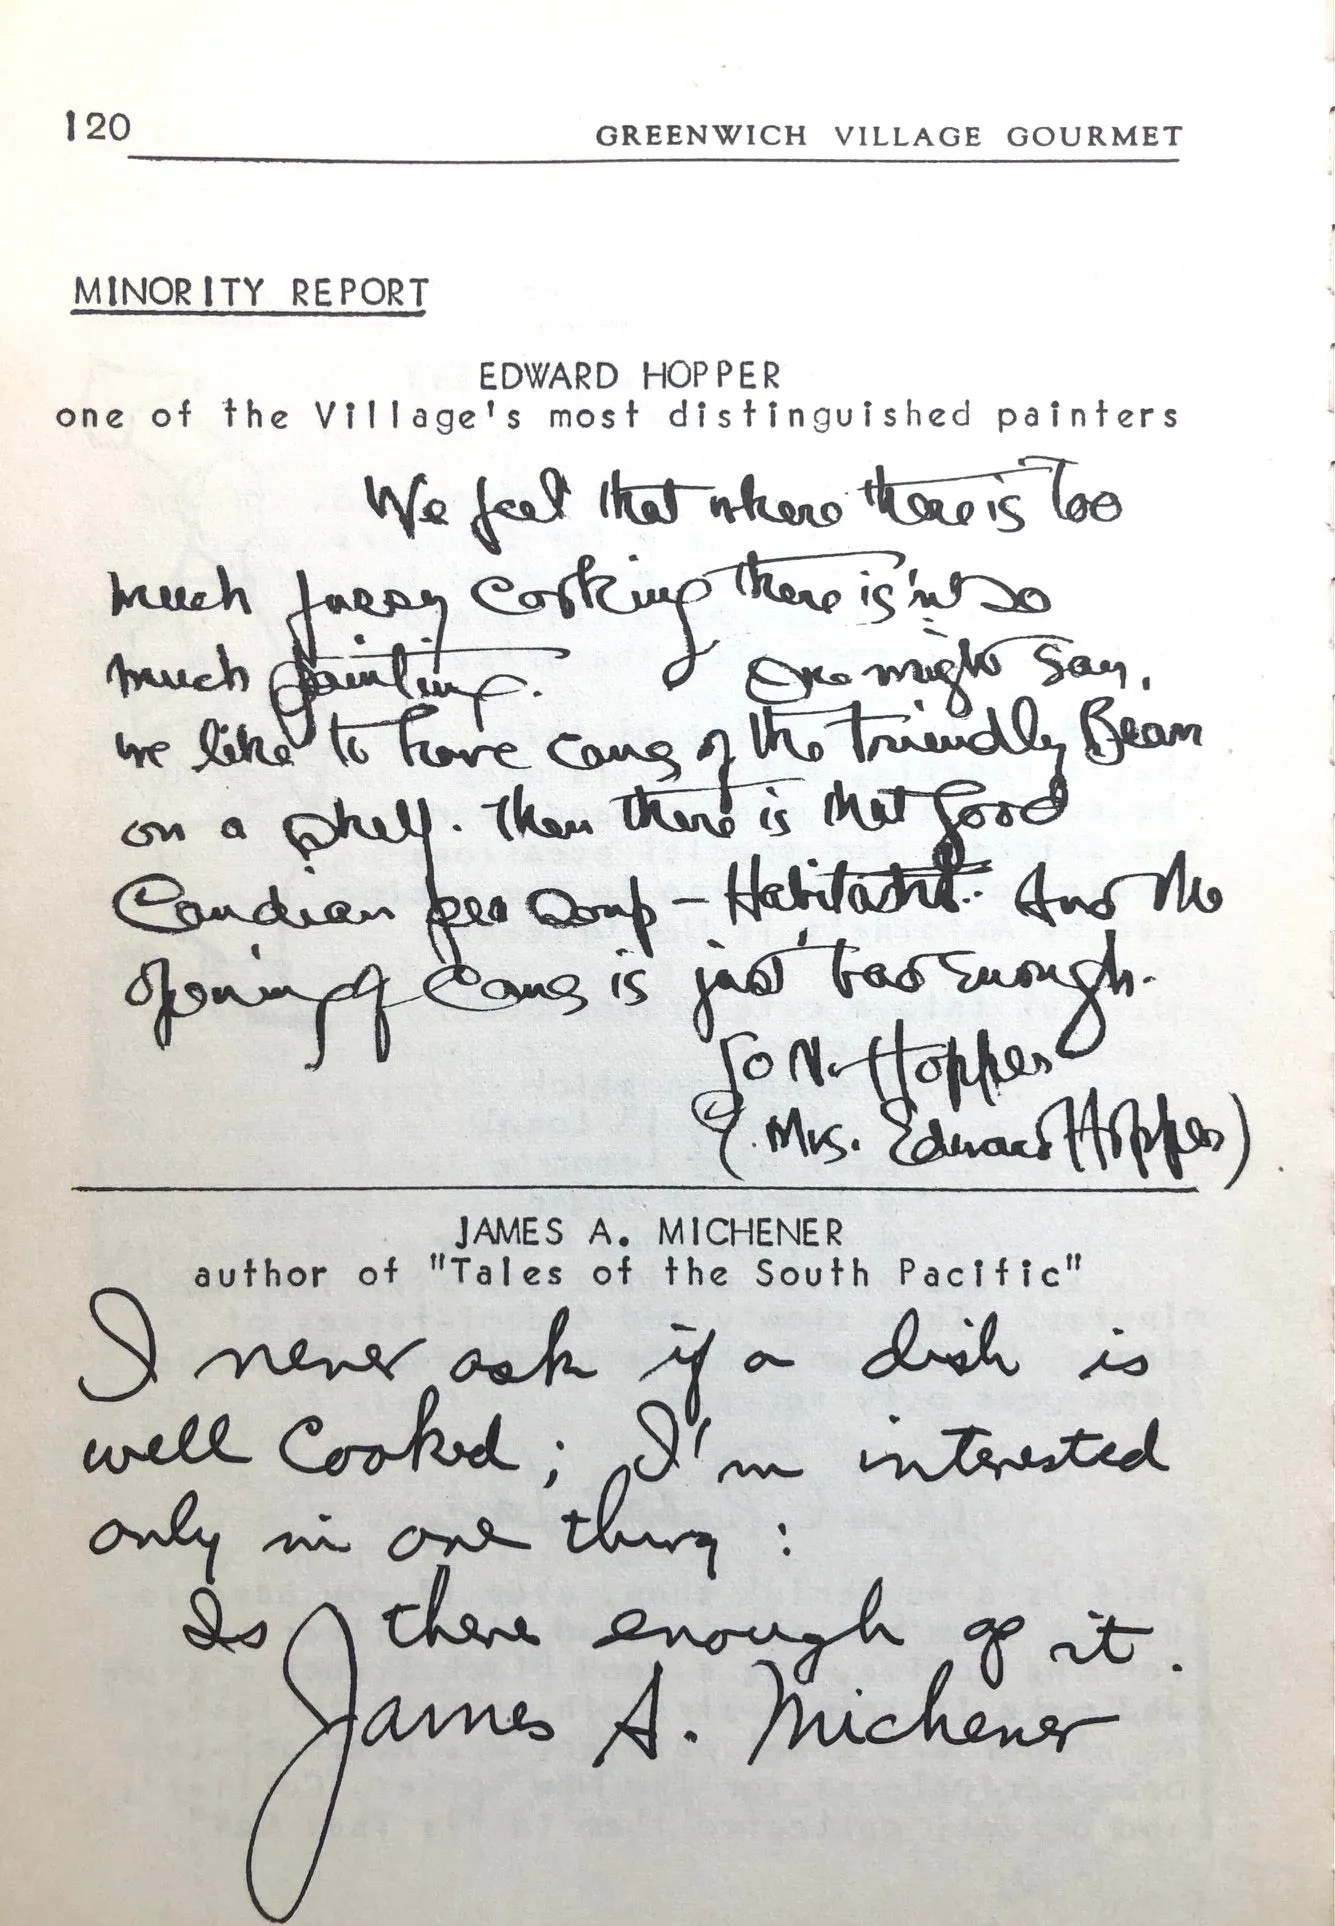 120
GREENWICH VILLAGE GOURMET
MINORITY REPORT
EDWARD HOPPER
one of the Village's most distinguished painters
We feel that where there is Too
much fussy cooking there is'nt so
much painting. One might say,
we like to have cans of the friendly Bean
on a shelf. Then there is that good
Candian pea soup – Habitant. And the
opening of cans is just bad enough.
Jo N. Hopper
(Mrs. Edward Hopper)
JAMES A. MICHENER
author of "Tales of the South Pacific"
I never ask if a dish is
well cooked; I'm interested
only in one thing:
Is there enough of it.
James A. Michener